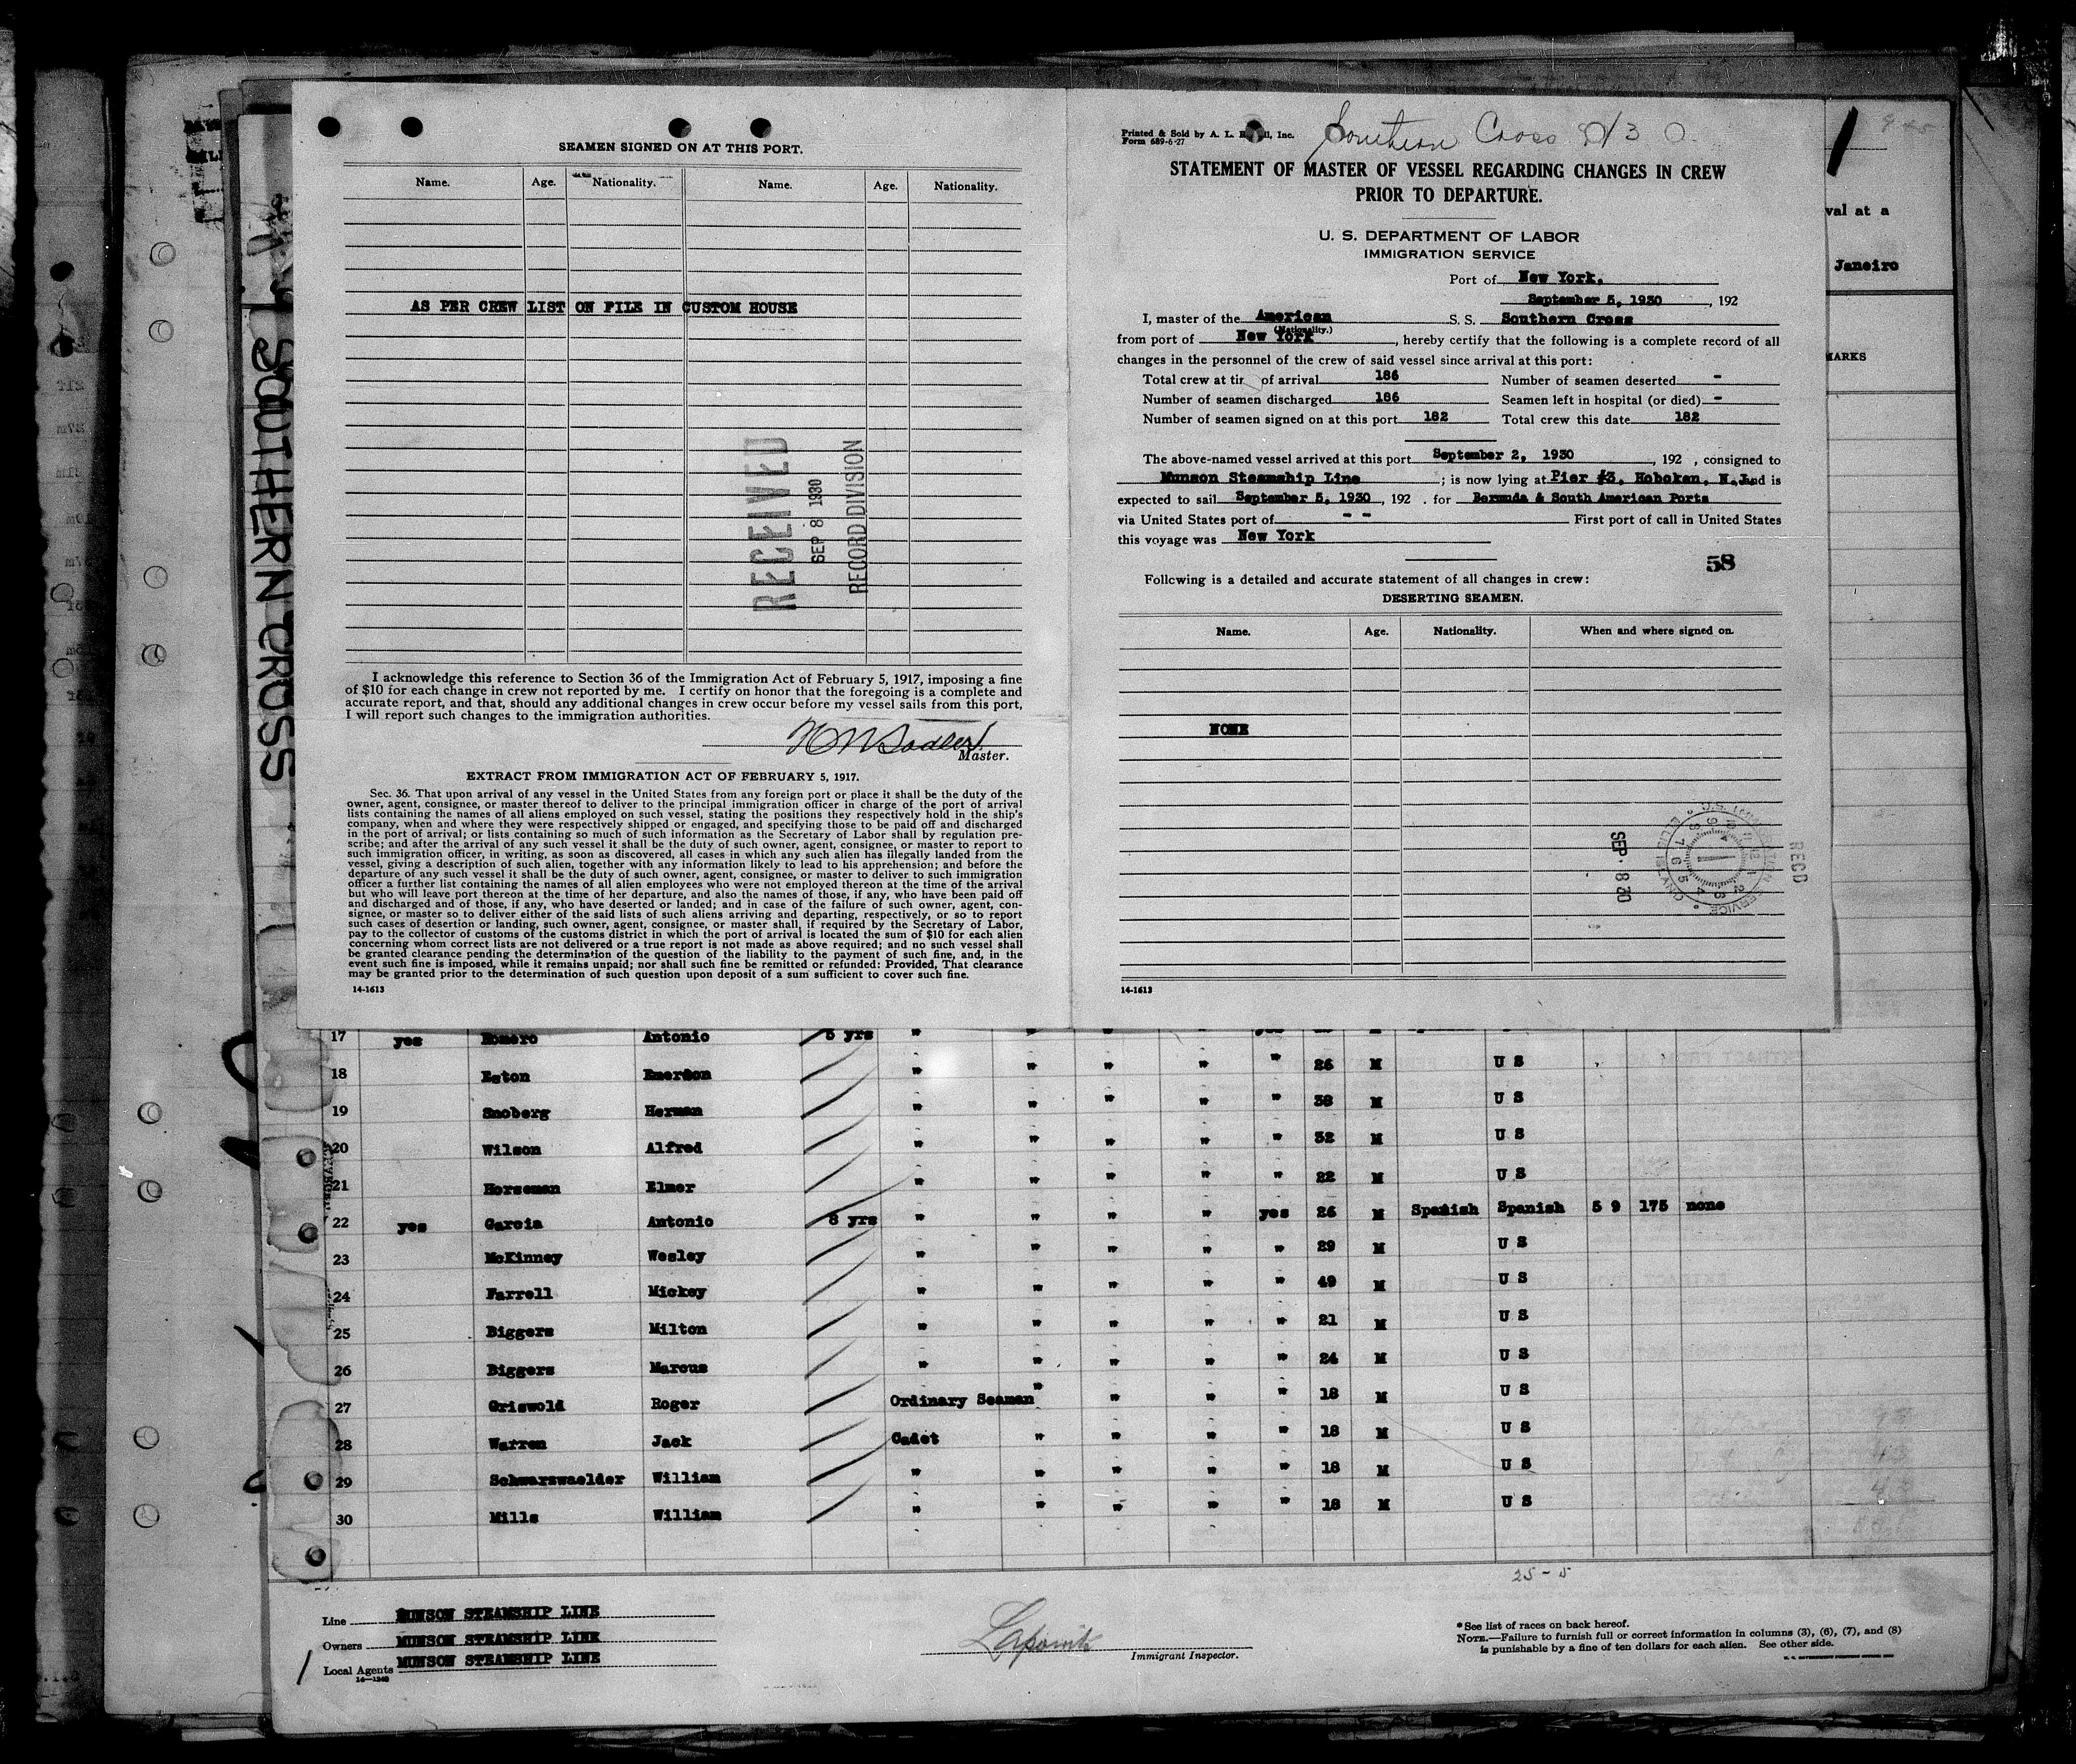 SEAMEN SIGNED ON AT THIS PORT.
Name. Age. Nationality. Name. Age. Nationality.
AS PER CREW LIST ON FILE IN CUSTOM HOUSE
RECEIVED
SEP 8 1930
RECORD DIVISION
I acknowledge this reference to Section 36 of the Immigration Act of February 5, 1917, imposing a fine
of $10 for each change in crew not reported by me. I certify on honor that the foregoing is a complete and
accurate report, and that, should any additional changes in crew occur before my vessel sails from this port,
I will report such changes to the immigration authorities.
Master.
EXTRACT FROM IMMIGRATION ACT OF FEBRUARY 5, 1917.
Sec. 36. That upon arrival of any vessel in the United States from any foreign port or place it shall be the duty of the
owner, agent, consignee, or master thereof to deliver to the principal immigration officer in charge of the port of arrival
lists containing the names of all aliens employed on such vessel, stating the positions they respectively hold in the ship's
company, when and where they were respectively shipped or engaged, and specifying those to be paid off and discharged
in the port of arrival; or lists containing so much of such information as the Secretary of Labor shall by regulation pre-
scribe; and after the arrival of any such vessel it shall be the duty of such owner, agent, consignee, or master to report to
such immigration officer, in writing, as soon as discovered, all cases in which any such alien has illegally landed from the
vessel, giving a description of such alien, together with any information likely to lead to his apprehension; and before the
departure of any such vessel it shall be the duty of such owner, agent, consignee, or master to deliver to such immigration
officer a further list containing the names of all alien employees who were not employed thereon at the time of the arrival
but who will leave port thereon at the time of her departure, and also the names of those, if any, who have been paid off
and discharged and of those, if any, who have deserted or landed; and in case of the failure of such owner, agent, con-
signee, or master so to deliver either of the said lists of such aliens arriving and departing, respectively, or so to report
such cases of desertion or landing, such owner, agent, consignee, or master shall, if required by the Secretary of Labor,
pay to the collector of customs of the customs district in which the port of arrival is located the sum of $10 for each alien
concerning whom correct lists are not delivered or a true report is not made as above required; and no such vessel shall
be granted clearance pending the determination of the question of the liability to the payment of such fine, and, in the
event such fine is imposed, while it remains unpaid; nor shall such fine be remitted or refunded: Provided, That clearance
may be granted prior to the determination of such question upon deposit of a sum sufficient to cover such fine.
14-1613
Printed & Sold by A. L. Inc.
Form 689-6-27
Southern Cross
STATEMENT OF MASTER OF VESSEL REGARDING CHANGES IN CREW
PRIOR TO DEPARTURE.
U. S. DEPARTMENT OF LABOR
IMMIGRATION SERVICE
Port of New York,
September 5, 1930, 192
I, master of the American S. S. Southern Cross
(Nationality.)
from port of New York, hereby certify that the following is a complete record of all
changes in the personnel of the crew of said vessel since arrival at this port:
Total crew at of arrival 186 Number of seamen deserted -
Number of seamen discharged 186 Seamen left in hospital (or died) -
Number of seamen signed on at this port 182 Total crew this date 182
The above-named vessel arrived at this port September 2, 1930, 192 , consigned to
Munson Steamship Line; is now lying at Pier #3, Hoboken, N.J. and is
expected to sail September 5, 1930, 192 . for Bermuda & South American Ports
via United States port of - - First port of call in United States
this voyage was New York
58
Following is a detailed and accurate statement of all changes in crew:
DESERTING SEAMEN.
Name. Age. Nationality. When and where signed on.
NONE
SEP. 8 30
RECD
14-1613
SOUTHERN CROSS
val at a
Janeiro
MARKS
17 yes Romero Antonio 5 yrs " " " " yes
18 Eston Emerson " " " " " 26 M U S
19 Snoberg Herman " " " " " 38 M U S
20 Wilson Alfred " " " " " 32 M U S
21 Horseman Elmer " " " " " 22 M U S
22 yes Garcia Antonio 8 yrs " " " " yes 26 M Spanish Spanish 5 9 175 none
23 McKinney Wesley " " " " " 29 M U S
24 Farrell Mickey " " " " " 49 M U S
25 Biggers Milton " " " " " 21 M U S
26 Biggers Marcus " " " " " 24 M U S
27 Griswold Roger Ordinary Seaman " " " " 18 M U S
28 Warren Jack Cadet " " " " 18 M U S
29 Schwarzwaelder William " " " " " 18 M U S
30 Mills William " " " " " 18 M U S
25 - 5
Line MUNSON STEAMSHIP LINE
Owners MUNSON STEAMSHIP LINE
Local Agents MUNSON STEAMSHIP LINE
14-1240
Immigrant Inspector.
*See list of races on back hereof.
NOTE.—Failure to furnish full or correct information in columns (3), (6), (7), and (8)
is punishable by a fine of ten dollars for each alien. See other side.